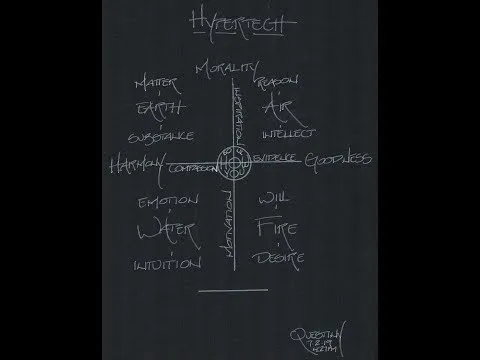 HYPERTECH
MORALITY
MATTER
EARTH
SUBSTANCE
REASON
AIR
INTELLECT
INSPIRATION
HARMONY
COMPASSION
EVIDENCE
GOODNESS
MOTIVATION
EMOTION
WATER
INTUITION
WILL
FIRE
DESIRE
7.2.19